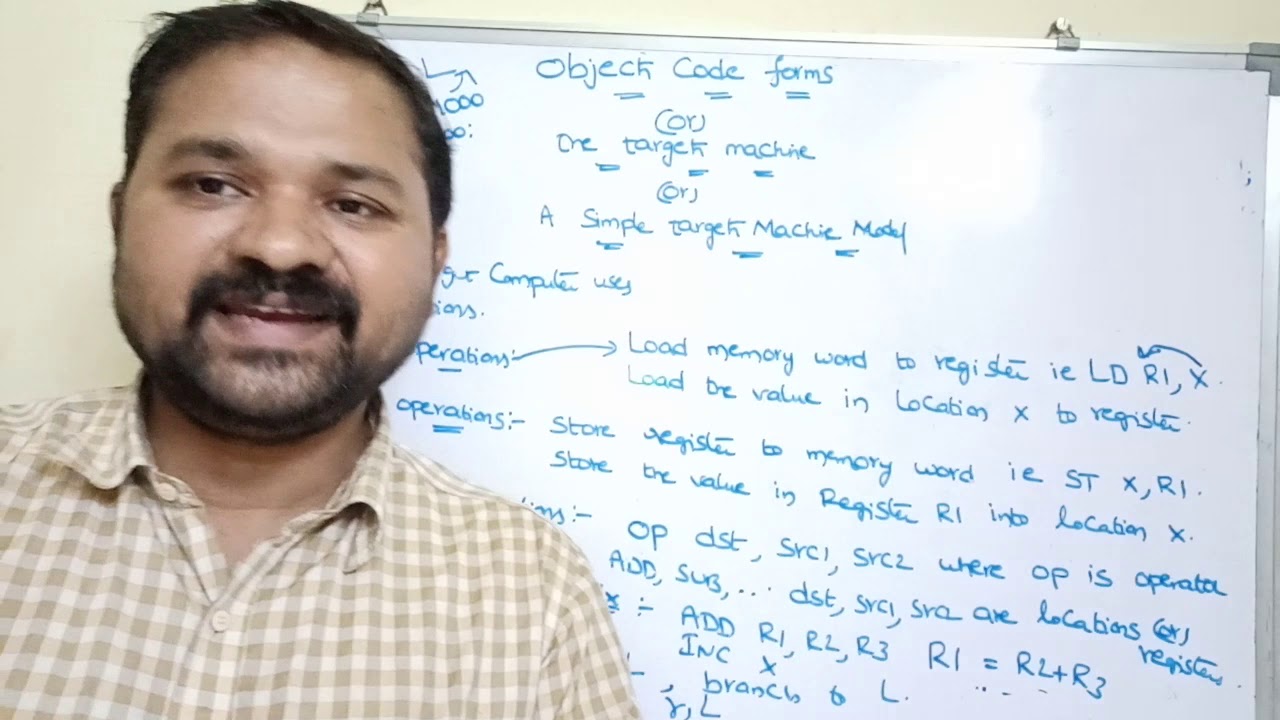 L
1000
Object Code forms
(or)
The target machine
(or)
A Simple target Machie Model
get Computer uses
ions.
perations:- → Load memory word to register ie LD R1, X.
Load the value in location X to register.
operations:- Store register to memory word ie ST X, R1.
Store the value in Register R1 into location X.
ions:- OP dst, src1, src2 where op is operator
ADD, SUB, ... dst, src1, src2 are locations (or)
registers.
:- ADD R1, R2, R3 R1 = R2+R3
INC X ....
, branch to L.
r, L